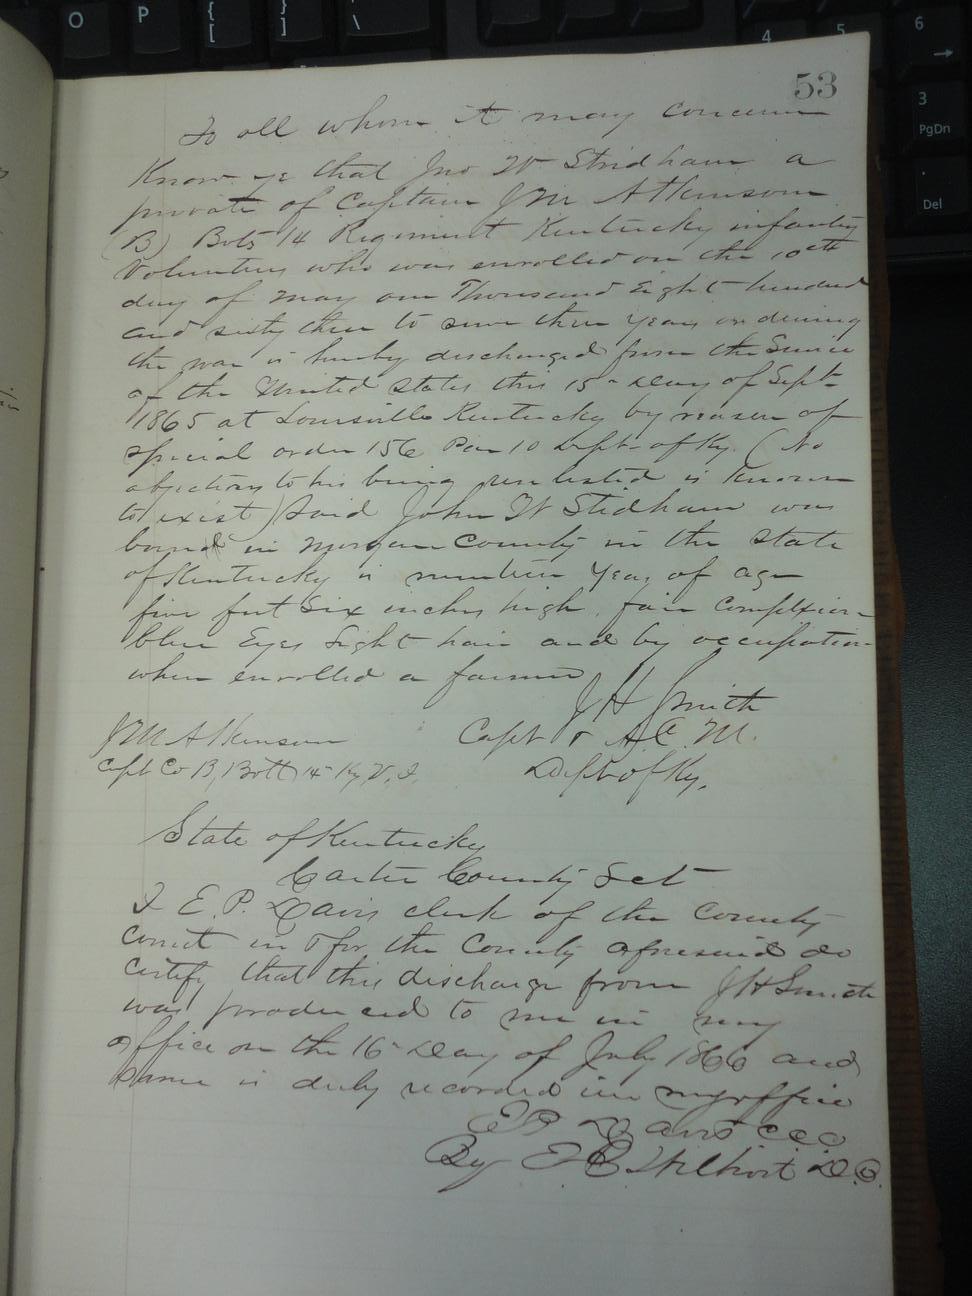 O P { [ } ] | \ 4 5 6 →
3 PgDn
. Del
53
To all whom it may concern
Know ye that Jno W Stidham a
private of Captain J M Atkinson
(B) Bolt 14 Regiment Kentucky infantry
Volunteers who was enrolled on the 10th
day of may one Thousand Eight hundred
and sixty three to serve three years or during
the war is hereby discharged from the Service
of the United States this 15" Day of Sept
1865 at Louisville Kentucky by reason of
special order 156 Par 10 Dept of Ky. (No
objection to his being reenlisted is known
to exist) Said John W Stidham was
born in Morgan County in the State
of Kentucky is nineteen Years of age
five feet Six inches high fair Complexion
blue Eyes Light hair and by occupation
when enrolled a farmer
J H Smith
J M Atkinson Capt & A C M.
Capt Co B, Batt 14" Ky V. I. Dept of Ky.
State of Kentucky
Carter County Sct
I E. P. Davis clerk of the County
Court in & for the County aforesaid do
certify that this discharge from J H Smith
was produced to me in my
office on the 16" Day of July 1866 and
same is duly recorded in my office
E P Davis CCC
By E. B D.C.